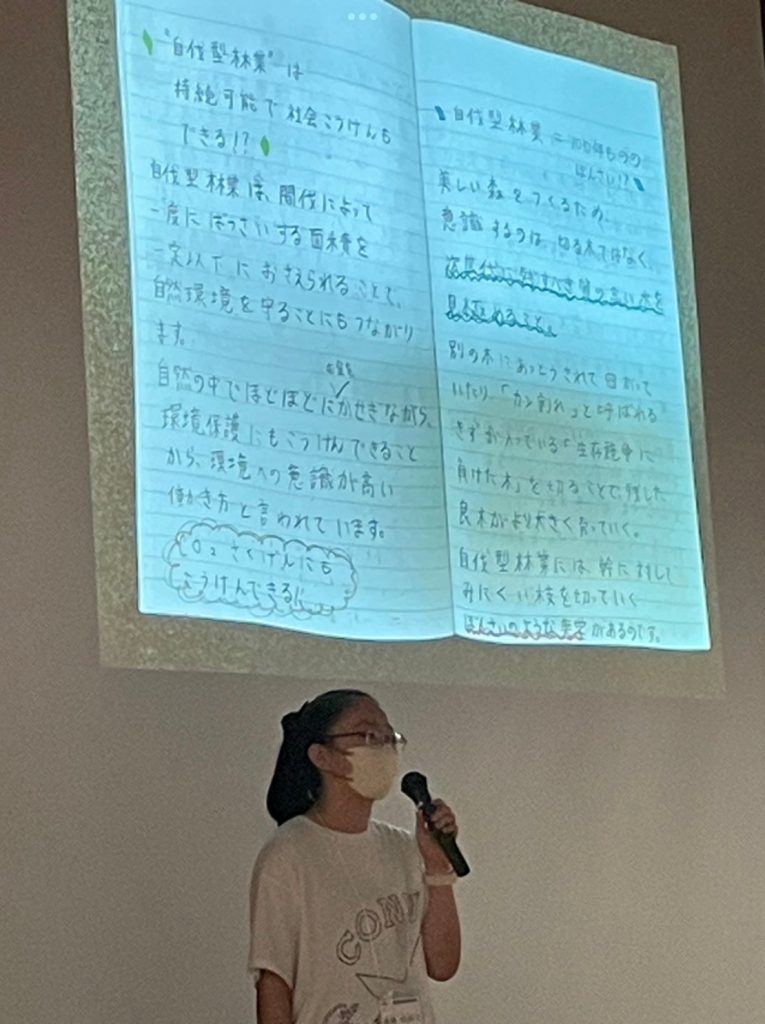 "自伐型林業"は
持続可能で社会こうけんも
できる!?
自伐型林業は、間伐によって
一度にばっさいする面積を
一定以下におさえられることで、
自然環境を守ることにもつながり
ます。
自然の中でほどほどにかせぎながら、
環境保護にもこうけんできること
から、環境への意識が高い
働き方と言われています。
CO2さくげんにも
こうけんできる!!
自伐型林業=100年ものの
ぼんさい!?
美しい森をつくるため、
意識するのは、切る木ではなく、
次世代に残すべき質の高い木を
見極めること。
別の木にあっとうされて曲がって
いたり、「カン割れ」と呼ばれる
きずが入っている「生存競争に
負けた木」を切ることで、残した
良木がより大きくなっていく。
自伐型林業には、幹に対して
みにくい枝を切っていく
ぼんさいのような美学があるのです。
CON